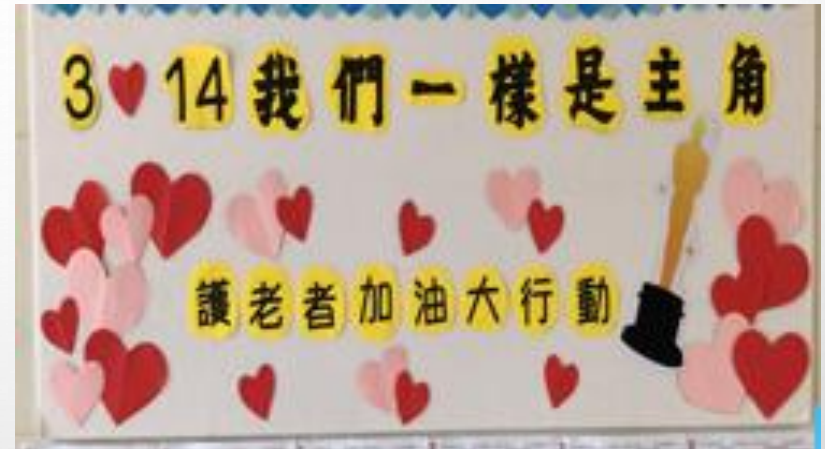 3♥14我們一樣是主角
護老者加油大行動